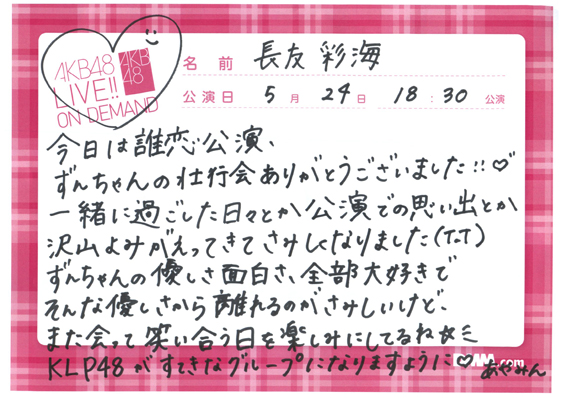 AKB48
LIVE!!
ON DEMAND
AKB
48
名前 長友 彩海
公演日 5月 24日 18:30 公演
今日は誰恋公演、
ずんちゃんの壮行会ありがとうございました!!♡
一緒に過ごした日々とか公演での思い出とか
沢山よみがえってきてさみしくなりました(T_T)
ずんちゃんの優しさ面白さ、全部大好きで
そんな優しさから離れるのがさみしいけど、
また会って笑い合う日を楽しみにしてるね☆ミ
KLP48がすてきなグループになりますように♡
.com
あやみん